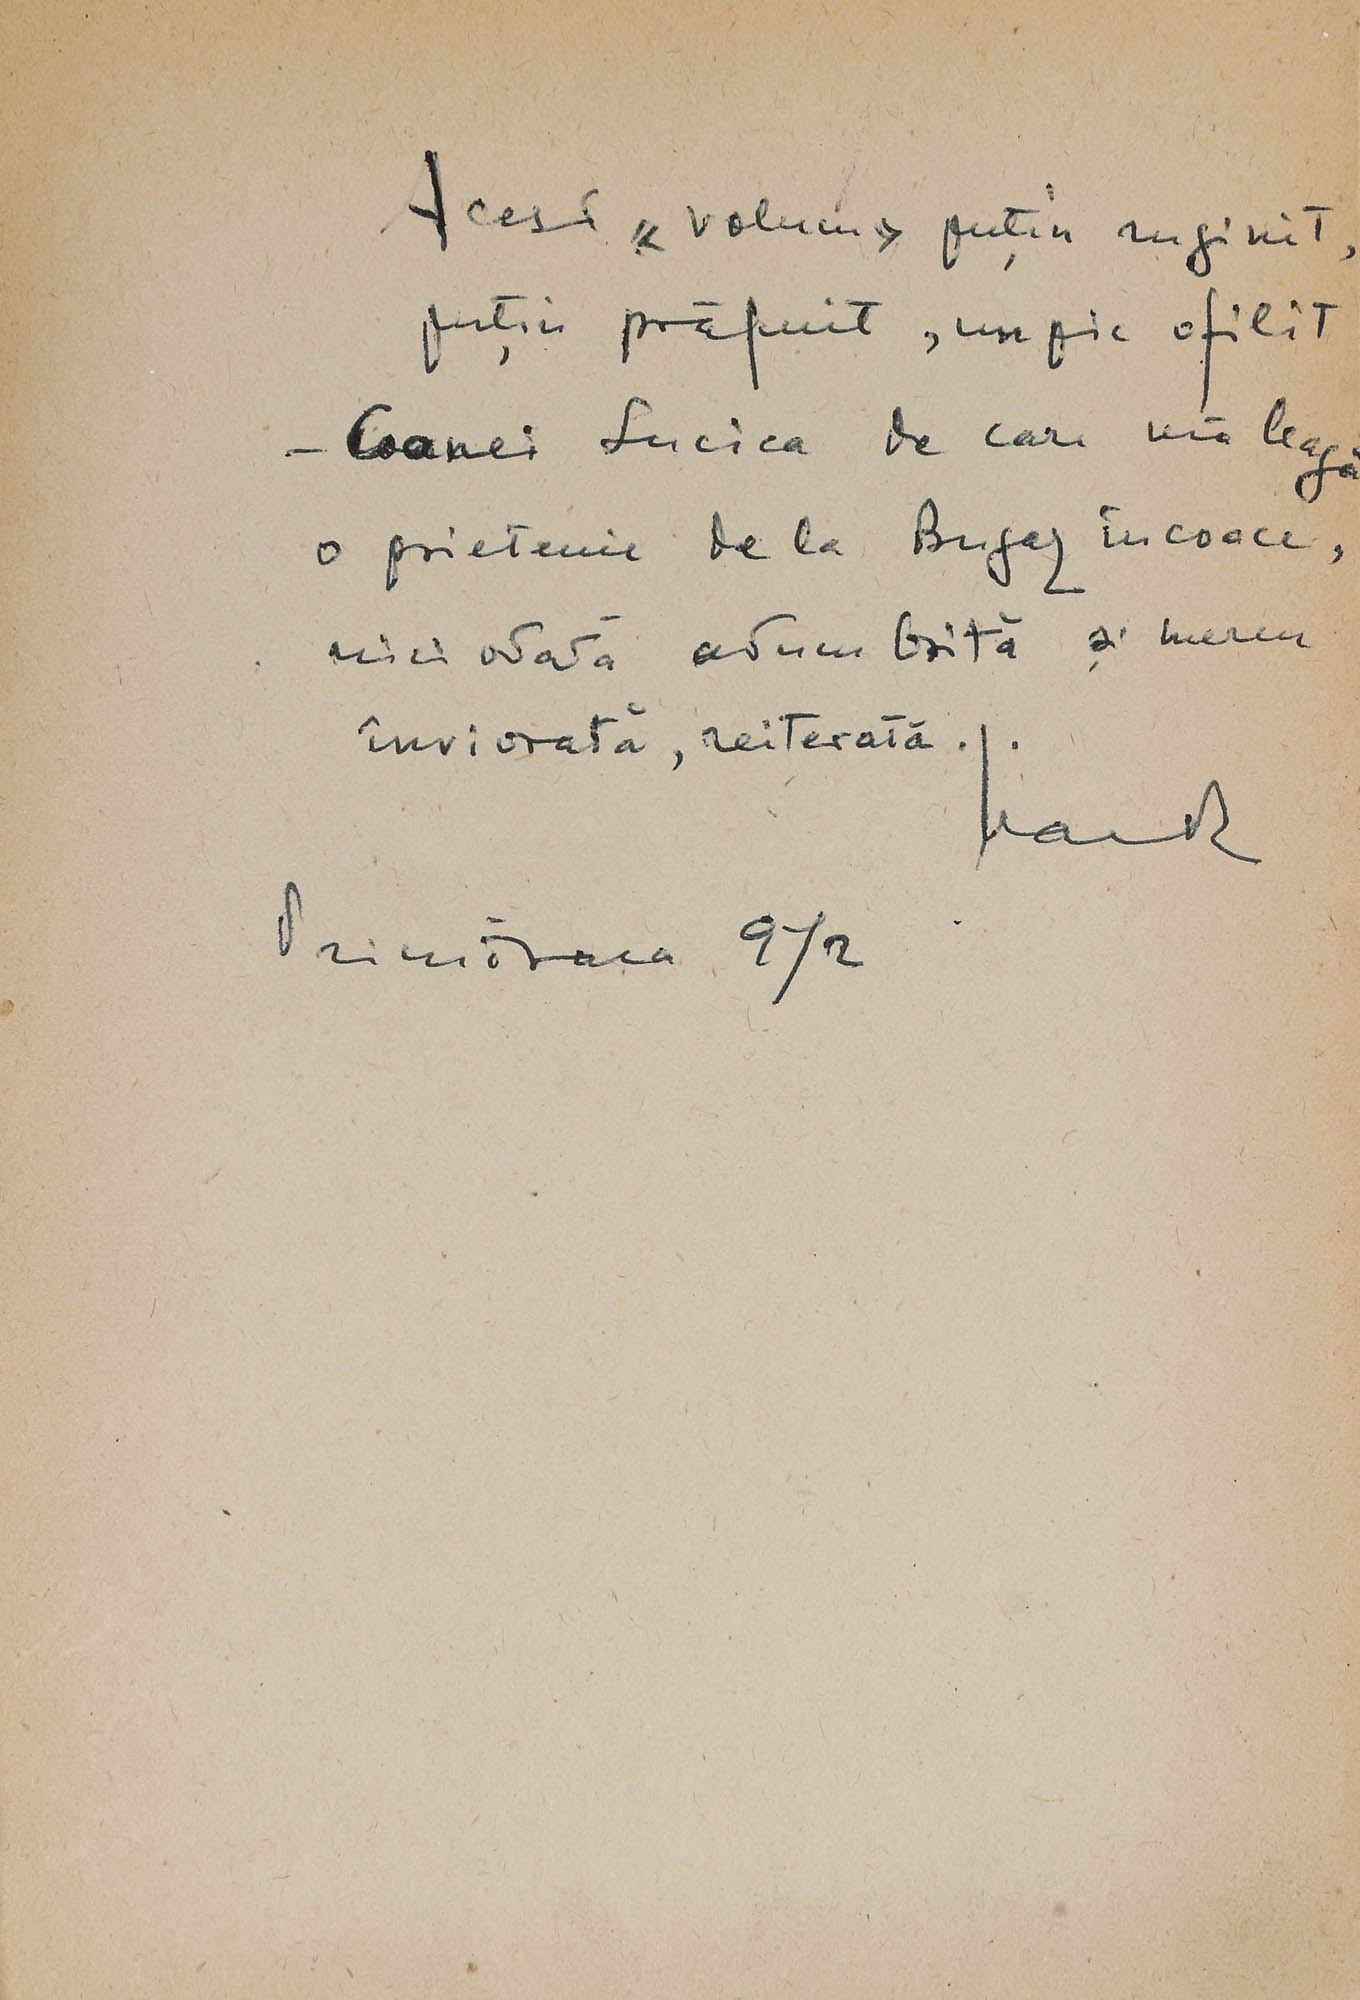 Acest « volum » puțin ruginit,
puțin prăfuit, un pic ofilit
– Coanei Lucica de care mă leagă
o prietenie de la Bugaz încoace,
nici odată adumbrită și mereu
înviorată, reiterată . .
972